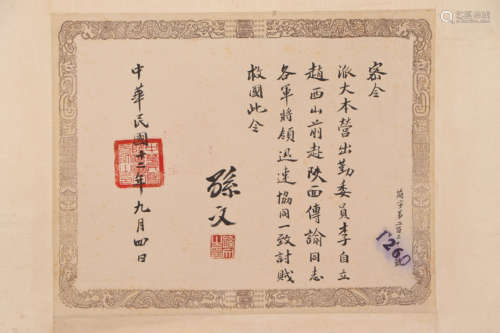 密令
派大本營出勤委員李自立
趙西山前赴陝西傳諭同志
各軍將領迅速協同一致討賊
救國此令
孫文
中華民國十二年九月四日
1260